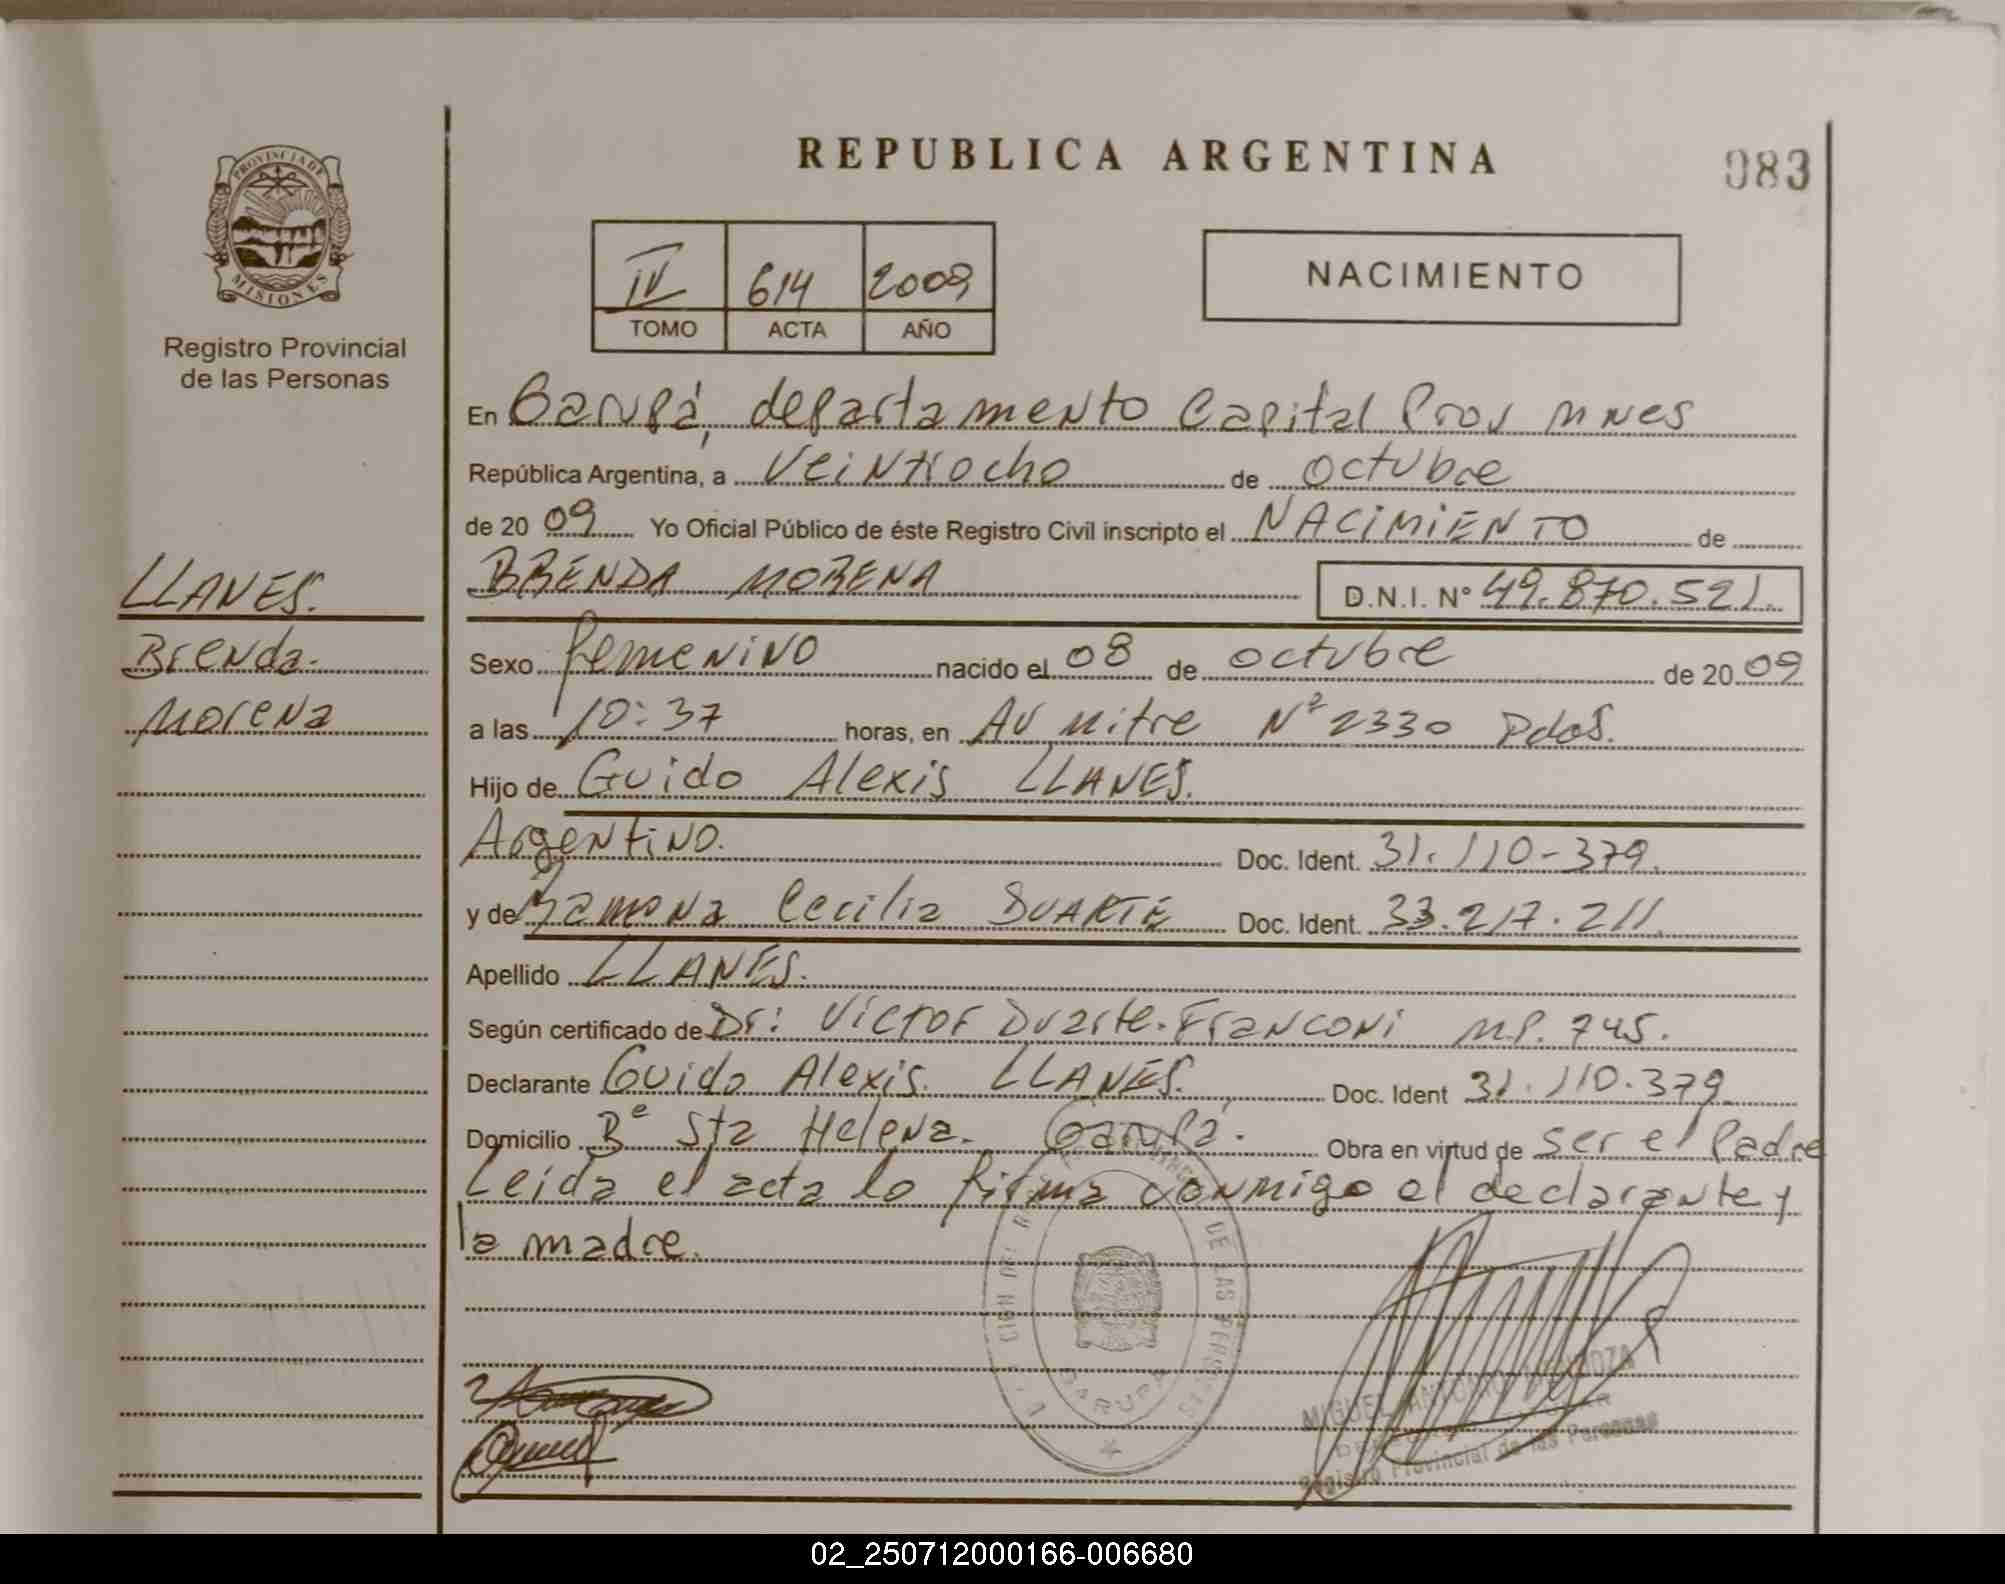 REPUBLICA ARGENTINA
083
PROVINCIA DE
MISIONES
Registro Provincial
de las Personas
IV 614 2009
TOMO ACTA AÑO
NACIMIENTO
En Garupá, departamento Capital Prov Mnes
República Argentina, a Veintiocho de octubre
de 2009 Yo Oficial Público de éste Registro Civil inscripto el NACIMIENTO de
LLANES.
Brenda.
Morena
BRENDA MORENA D.N.I. N° 49.870.521.
Sexo femenino nacido el 08 de octubre de 2009
a las 10:37 horas, en AV Mitre Nº 2330 Pdas.
Hijo de Guido Alexis LLANES.
Argentino. Doc. Ident. 31.110-379.
y de Ramona Cecilia DUARTE Doc. Ident. 33.217.211
Apellido LLANES.
Según certificado de Dr: Victor Duarte. Franconi M.P. 745.
Declarante Guido Alexis. LLANES. Doc. Ident 31.110.379
Domicilio Bº Sta Helena. Garupá. Obra en virtud de ser el Padre
Leida el acta lo firma conmigo el declarante y
la madre.
DE LAS PERSONAS
GARUPA
MIGUEL ANTONIO MENDOZA
Registro Provincial de las Personas
02_250712000166-006680